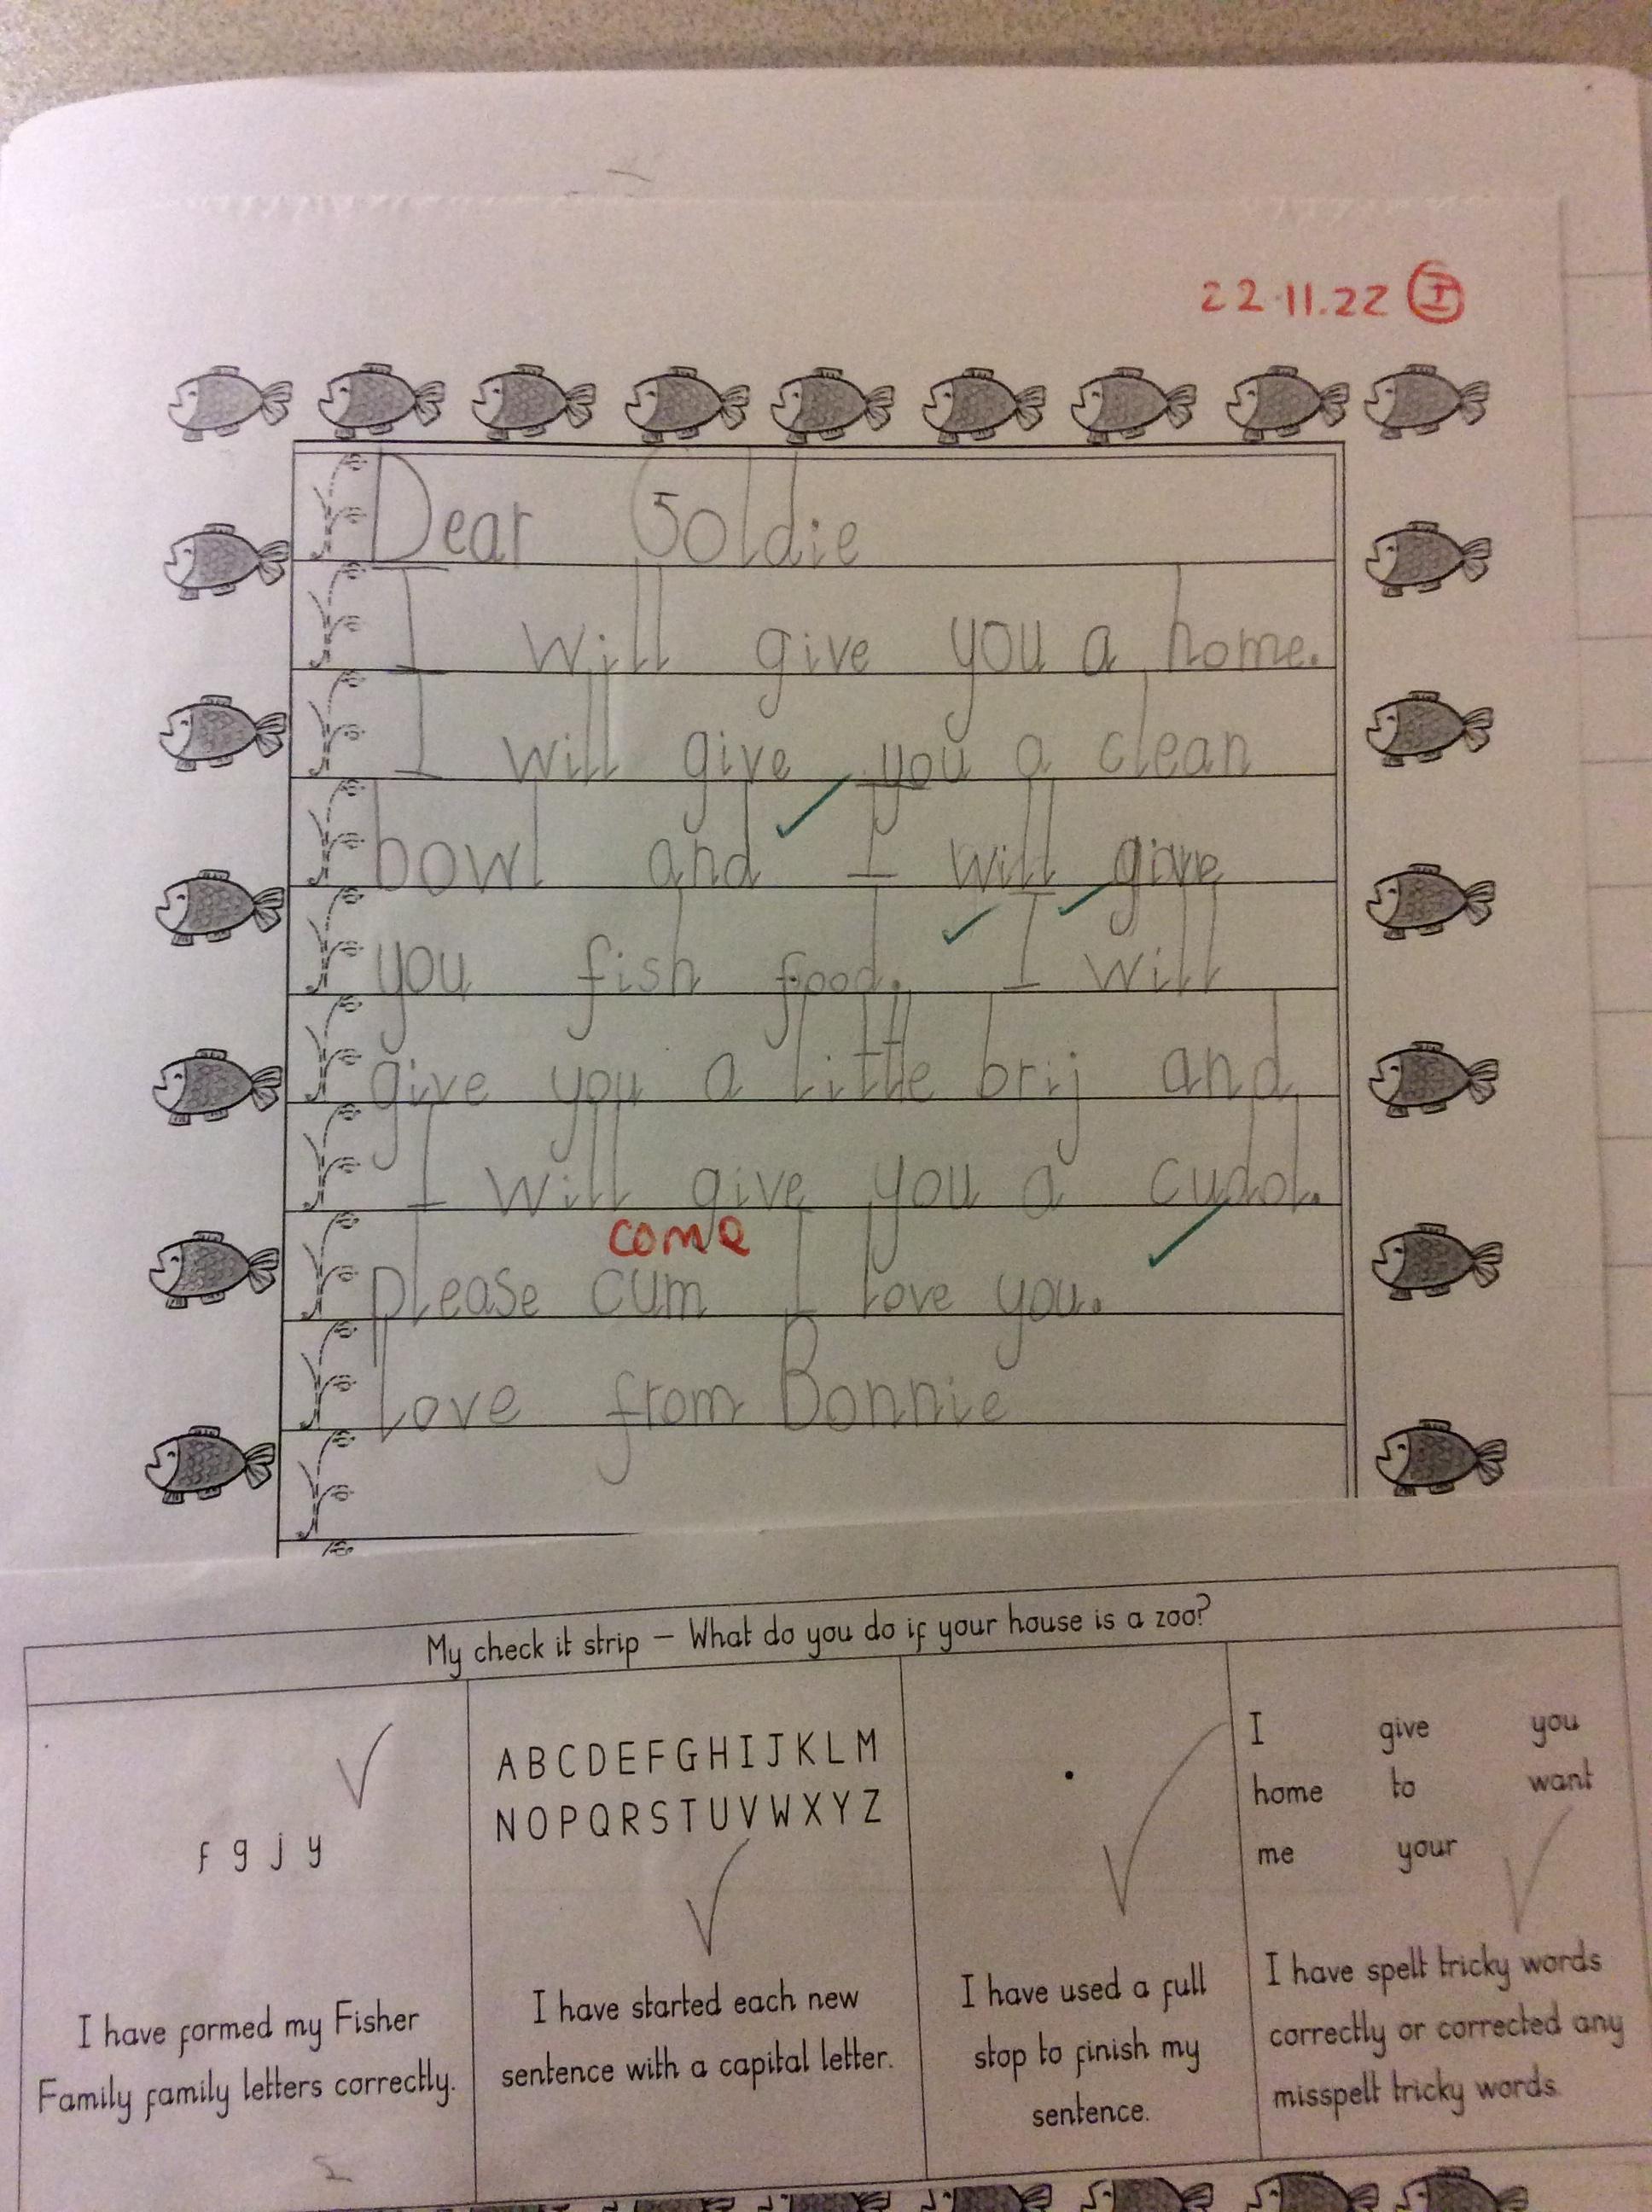 22.11.22 I
Dear Goldie
I will give you a home.
I will give you a clean
bowl and I will give
you fish food. I will
give you a little brij and
I will give you a cudol.
come
please cum I love you.
love from Bonnie
My check it strip – What do you do if your house is a zoo?
f g j y
I have formed my Fisher
Family family letters correctly.
A B C D E F G H I J K L M
N O P Q R S T U V W X Y Z
I have started each new
sentence with a capital letter.
.
I have used a full
stop to finish my
sentence.
I give you
home to want
me your
I have spelt tricky words
correctly or corrected any
misspelt tricky words.